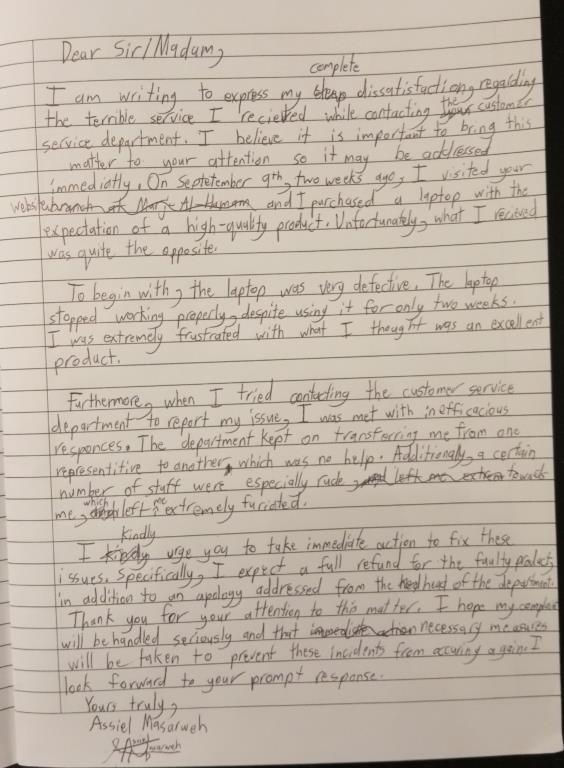 Dear Sir/Madam,
complete
I am writing to express my dissatisfaction, regarding
the terrible service I recieved while contacting the customer
service department. I believe it is important to bring this
matter to your attention so it may be addressed
immediatly. On Septetember 9th, two weeks ago, I visited your
website branch at Marj Al-Hamam and I purchased a laptop with the
expectation of a high-quality product. Unfortunately, what I recieved
was quite the opposite.
To begin with, the laptop was very defective. The laptop
stopped working properly, despite using it for only two weeks.
I was extremely frustrated with what I thought was an excellent
product.
Furthermore, when I tried contacting the customer service
department to report my issue, I was met with inefficacious
responces. The department kept on transferring me from one
representitive to another, which was no help. Additionally, a certain
number of staff were especially rude, and left me extrem towads
me, which left me extremely furiated.
kindly
I kindly urge you to take immediate action to fix these
issues. Specifically, I expect a full refund for the faulty product,
in addition to an apology addressed from the head of the department.
Thank you for your attention to this matter. I hope my complain
will be handled seriously and that immediate action necessary measures
will be taken to prevent these incidents from accuring again. I
look forward to your prompt response.
Yours truly,
Assiel Masarweh